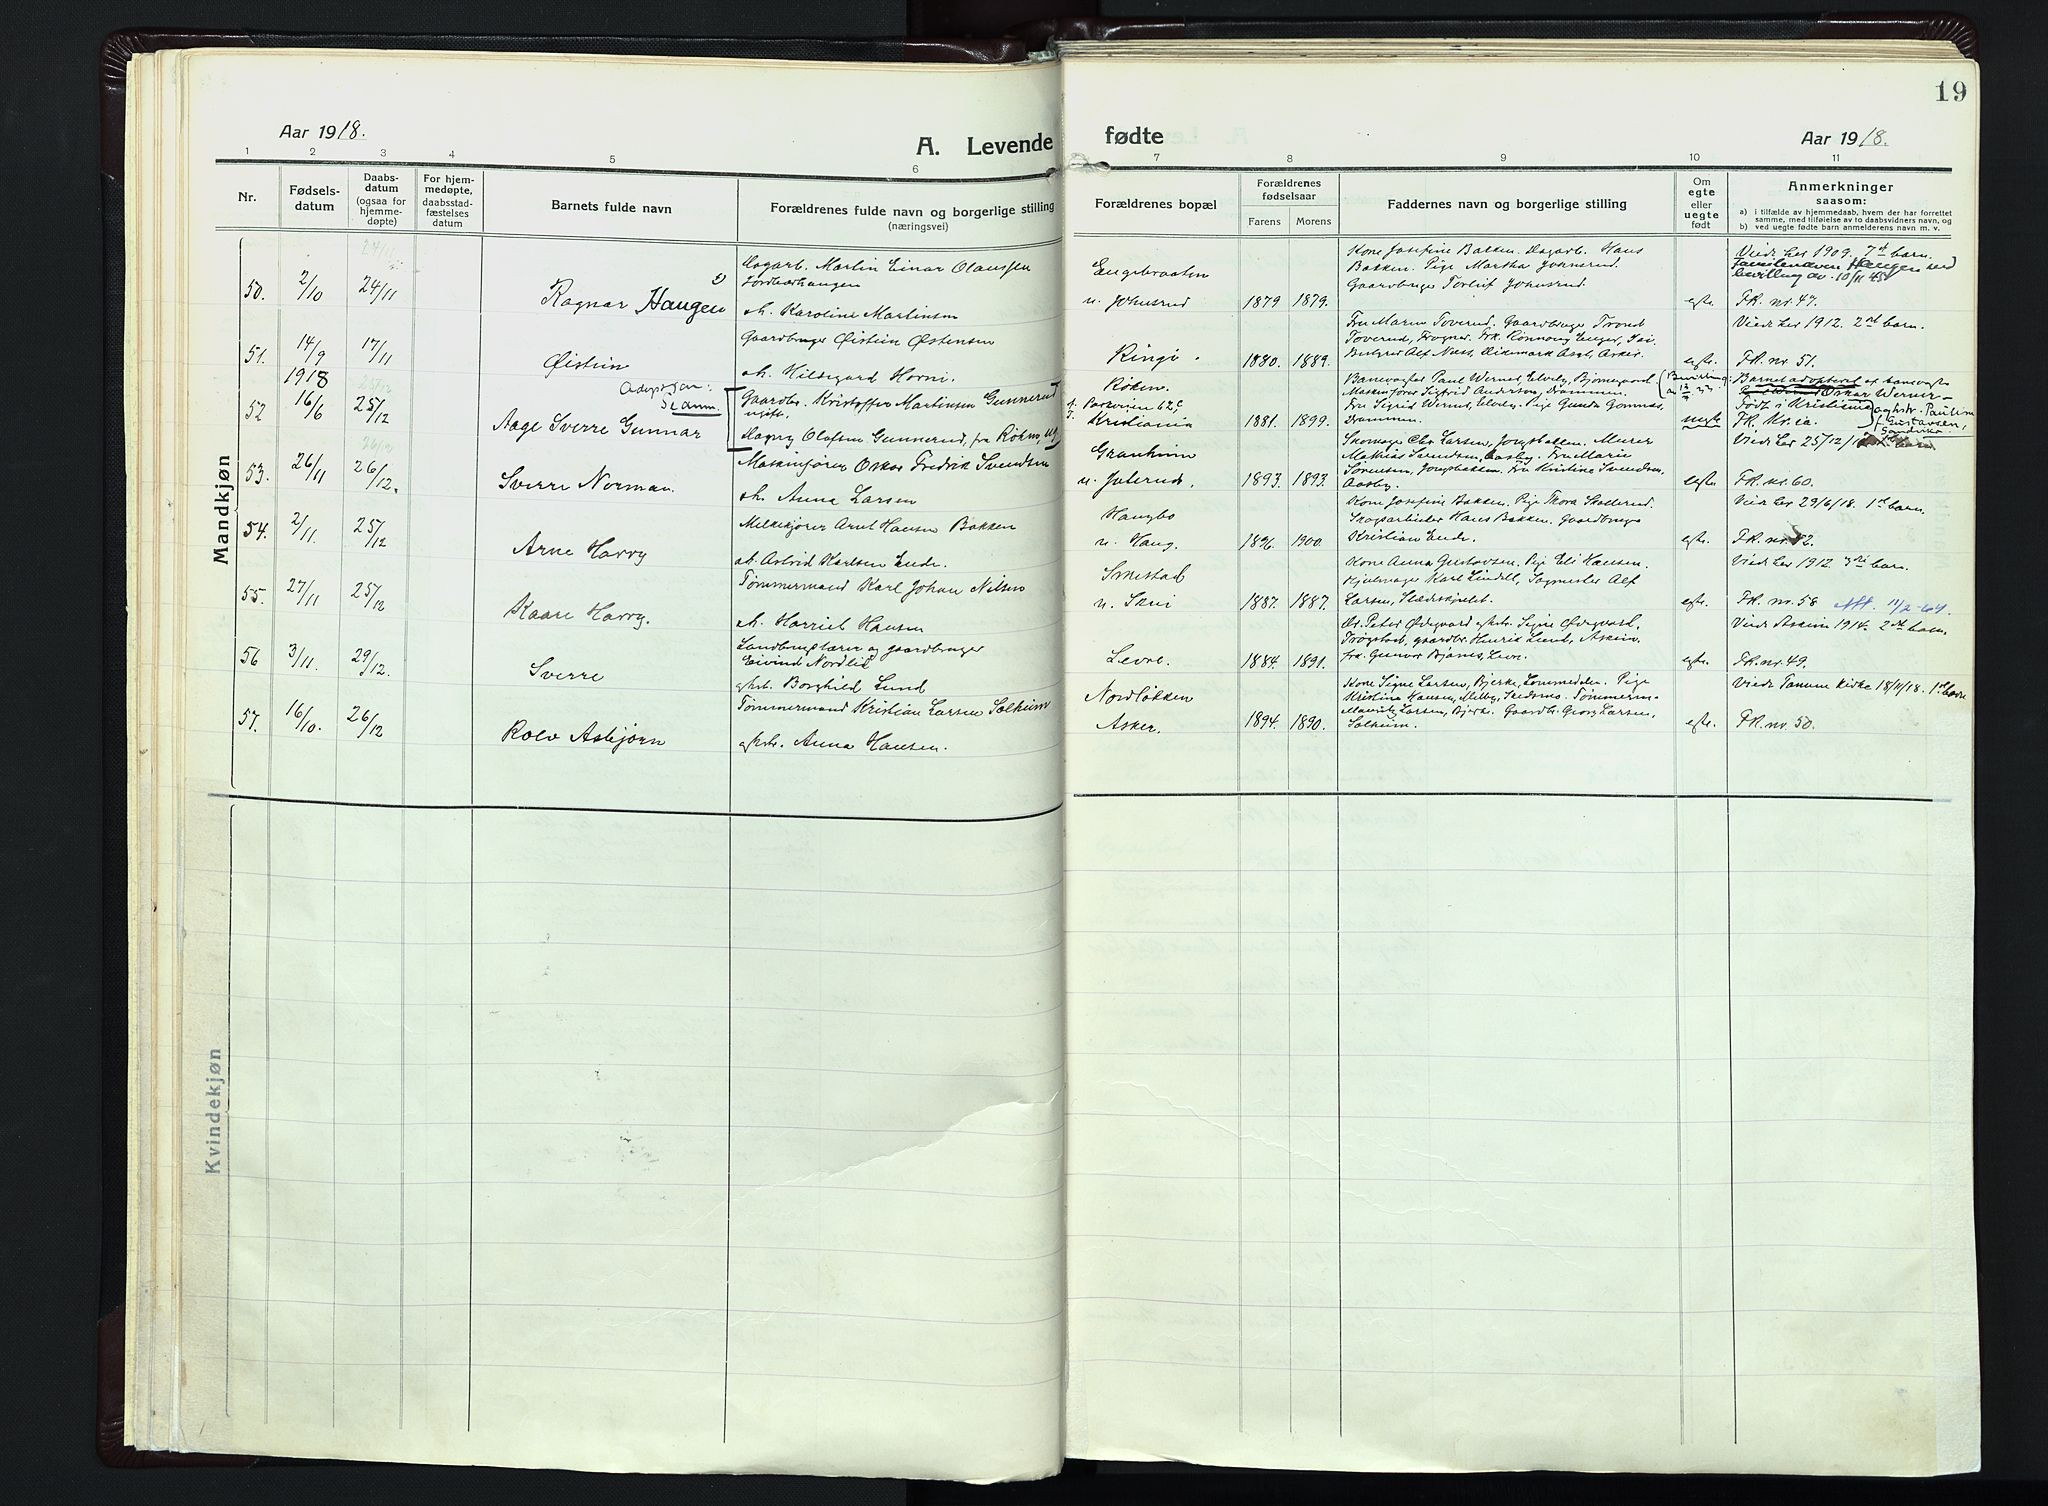 19
Aar 1918.
A. Levende
fødte
Aar 1918.
1 2 3 4 5 6
7 8 9 10 11
Nr.
Fødsels-
datum
Daabs-
datum
(ogsaa for
hjemme-
døpte)
For hjem-
medøpte,
daabsstad-
fæstelses
datum
Barnets fulde navn
Forældrenes fulde navn og borgerlige stilling
(næringsvei)
Forældrenes bopæl
Forældrenes
fødselsaar
Farens Morens
Faddernes navn og borgerlige stilling
Om
egte
eller
uegte
født
Anmerkninger
saasom:
a) i tilfælde av hjemmedaab, hvem der har forrettet
samme, med tilføielse av to daabsvidners navn, og
b) ved uegte fødte barn anmelderens navn m. v.
Mandkjøn
50. 2/10 24/11 Ragnar Haugen
Dagarb. Martin Einar Olaussen
h. Karoline Martinsen
Engebraaten
u. Johnsrud 1879 1879.
Kone Josefine Bakken. Dagarb. Hans
Bakken. Pige Martha Johnsrud.
Gaardbruger Torleif Johnsrud.
egte.
Viede her 1909. 7de barn.
familienavn Haugen ved
bevilling av. 10/11 45
FR. nr. 47.
51. 14/9 1918 17/11 Øistein
Gaardbruger Øistein Østensen
h. Hildegard Horni.
Ringi. 1880. 1889.
Fru Maren Toverud. Gaardbruger Trond
Toverud, Frogner. Frk. Ronnoug Enger,
egte.
Viede her 1912. 2net barn.
FR. nr. 51.
52 16/6 25/12 Aage Sverre Gunnar
Adoption:
Gaardbr. Kristoffer Martinsen Gunnerud
ugift.
Dagny Olafsen Gunnerud, fra Røken, ug.
Røken.
Kristiania 1881. 1899.
Banevogter Paul Werner, Elvely, Bjørnegaard.
Maskinfører Sigfrid Andersen, Drammen.
Fru Sigrid Werner, Elvely. Pige Gunda Gomnæs,
Drammen.
uegte
Barnet adopteret af banevogter
Oskar Werner
Født i Kristiania
Gustavsen,
Sandvika
53. 26/11 26/12. Sverre Norman.
Maskinfører Oskar Fredrik Svendsen
h. Anna Larsen
Granheim
1893. 1893.
Skomager Chr. Larsen, Jongsbakken. Murer
Mathias Svendsen, Aasly. Fru Marie
Sørensen, Jongsbakken. Fru Kristine Svendsen,
Aasly.
egte.
Viede her 25/12/1
FR. nr. 60.
54. 2/11 25/12 Arne Harry
Melkekjører Arnt Hansen Bakken
h. Astrid Karlsen Ende.
Haugbo
u. Haug. 1896. 1900.
Kone Josefine Bakken. Pige Thora Skollerud.
Skogsarbeider Hans Bakken. Gaardbruger
Kristian Ende.
egte.
Viede her 29/6/18. 1ste barn.
FR. nr. 52.
55. 27/11 25/12 Kaare Harry.
Tømmermand Karl Johan Nilsen
h. Harriet Hansen
Smestad
u. Skui 1887. 1887.
Kone Anna Gustavsen. Pige Eli Hansen.
Hjulmager Karl Lindell, Sagmester Alf
Larsen,
egte.
Viede her 1912. 3die barn.
FR. nr. 58 Att. 11/2-64.
56 3/11. 29/12. Sverre
Landbrugslærer og gaardbruger
Eivind Nordlie
og hst. Borghild Lund
Levre. 1884. 1891.
Dr. Peter Ødegaard og hst. Signe Ødegaard,
Trøgstad, gaardbr. Henrik Lund, Askim,
frk. Gunvor Bjanes, Levre.
egte.
Viede Askim 1914. 2det barn.
FR. nr. 49.
57. 16/10. 26/12 Rolv Asbjørn
Tømmermand Kristian Larsen Solheim
og hst. Anna Hansen.
Nordløkken
Asker. 1894. 1890.
Kone Signe Larsen, Bjerke, Lommedalen. Pige
Kristine Hansen, Melby, Skedsmo. Tømmerm.
Mauritz Larsen, Bjerke. Gaardbr. Georg Larsen,
Solheim.
egte.
Viede Tanum kirke 18/11/18. 1ste barn
FR. nr. 50.
Kvindekjøn